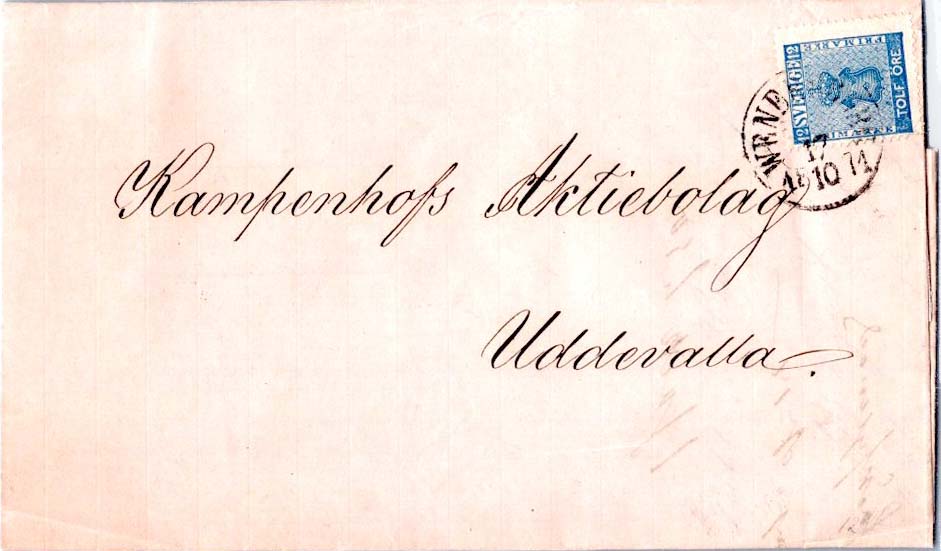 SVERIGE
12
12
FRIMÄRKE
TOLF ÖRE
17
18 10 71
Kampenhofs Aktiebolag
Uddevalla.